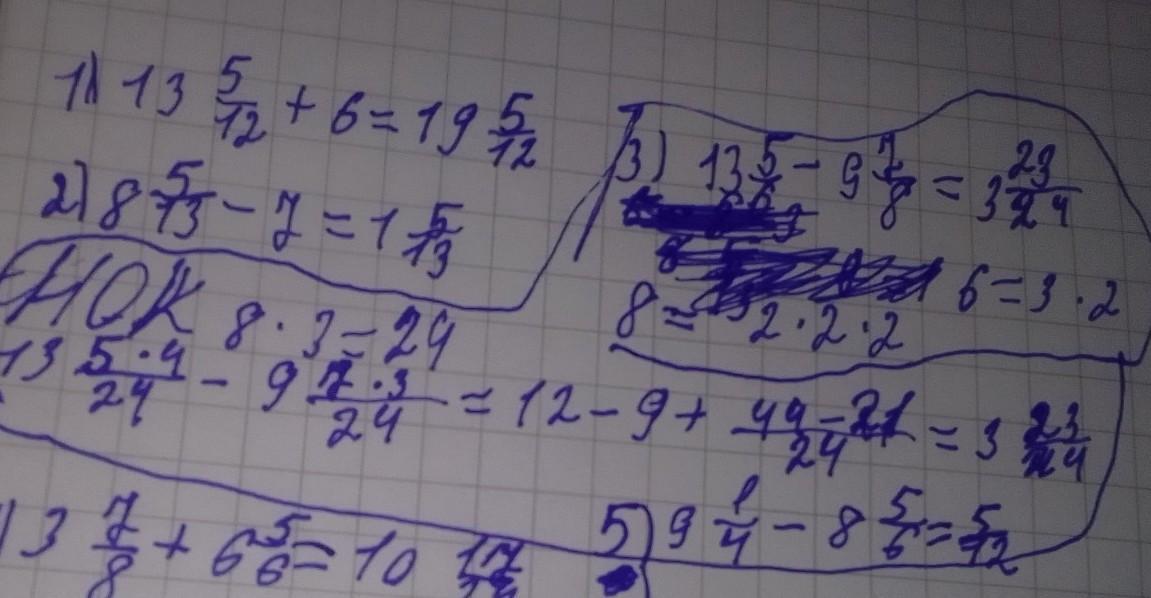 1) 13 5/12 + 6 = 19 5/12
2) 8 5/13 - 7 = 1 5/13
3) 13 5/6 - 9 7/8 = 3 23/24
8 = 2 · 2 · 2 6 = 3 · 2
НОК 8 · 3 = 24
13 5·4/24 - 9 7·3/24 = 12 - 9 + 44-21/24 = 3 23/24
) 3 7/8 + 6 5/6 = 10 17/24
5) 9 1/4 - 8 5/6 = 5/12